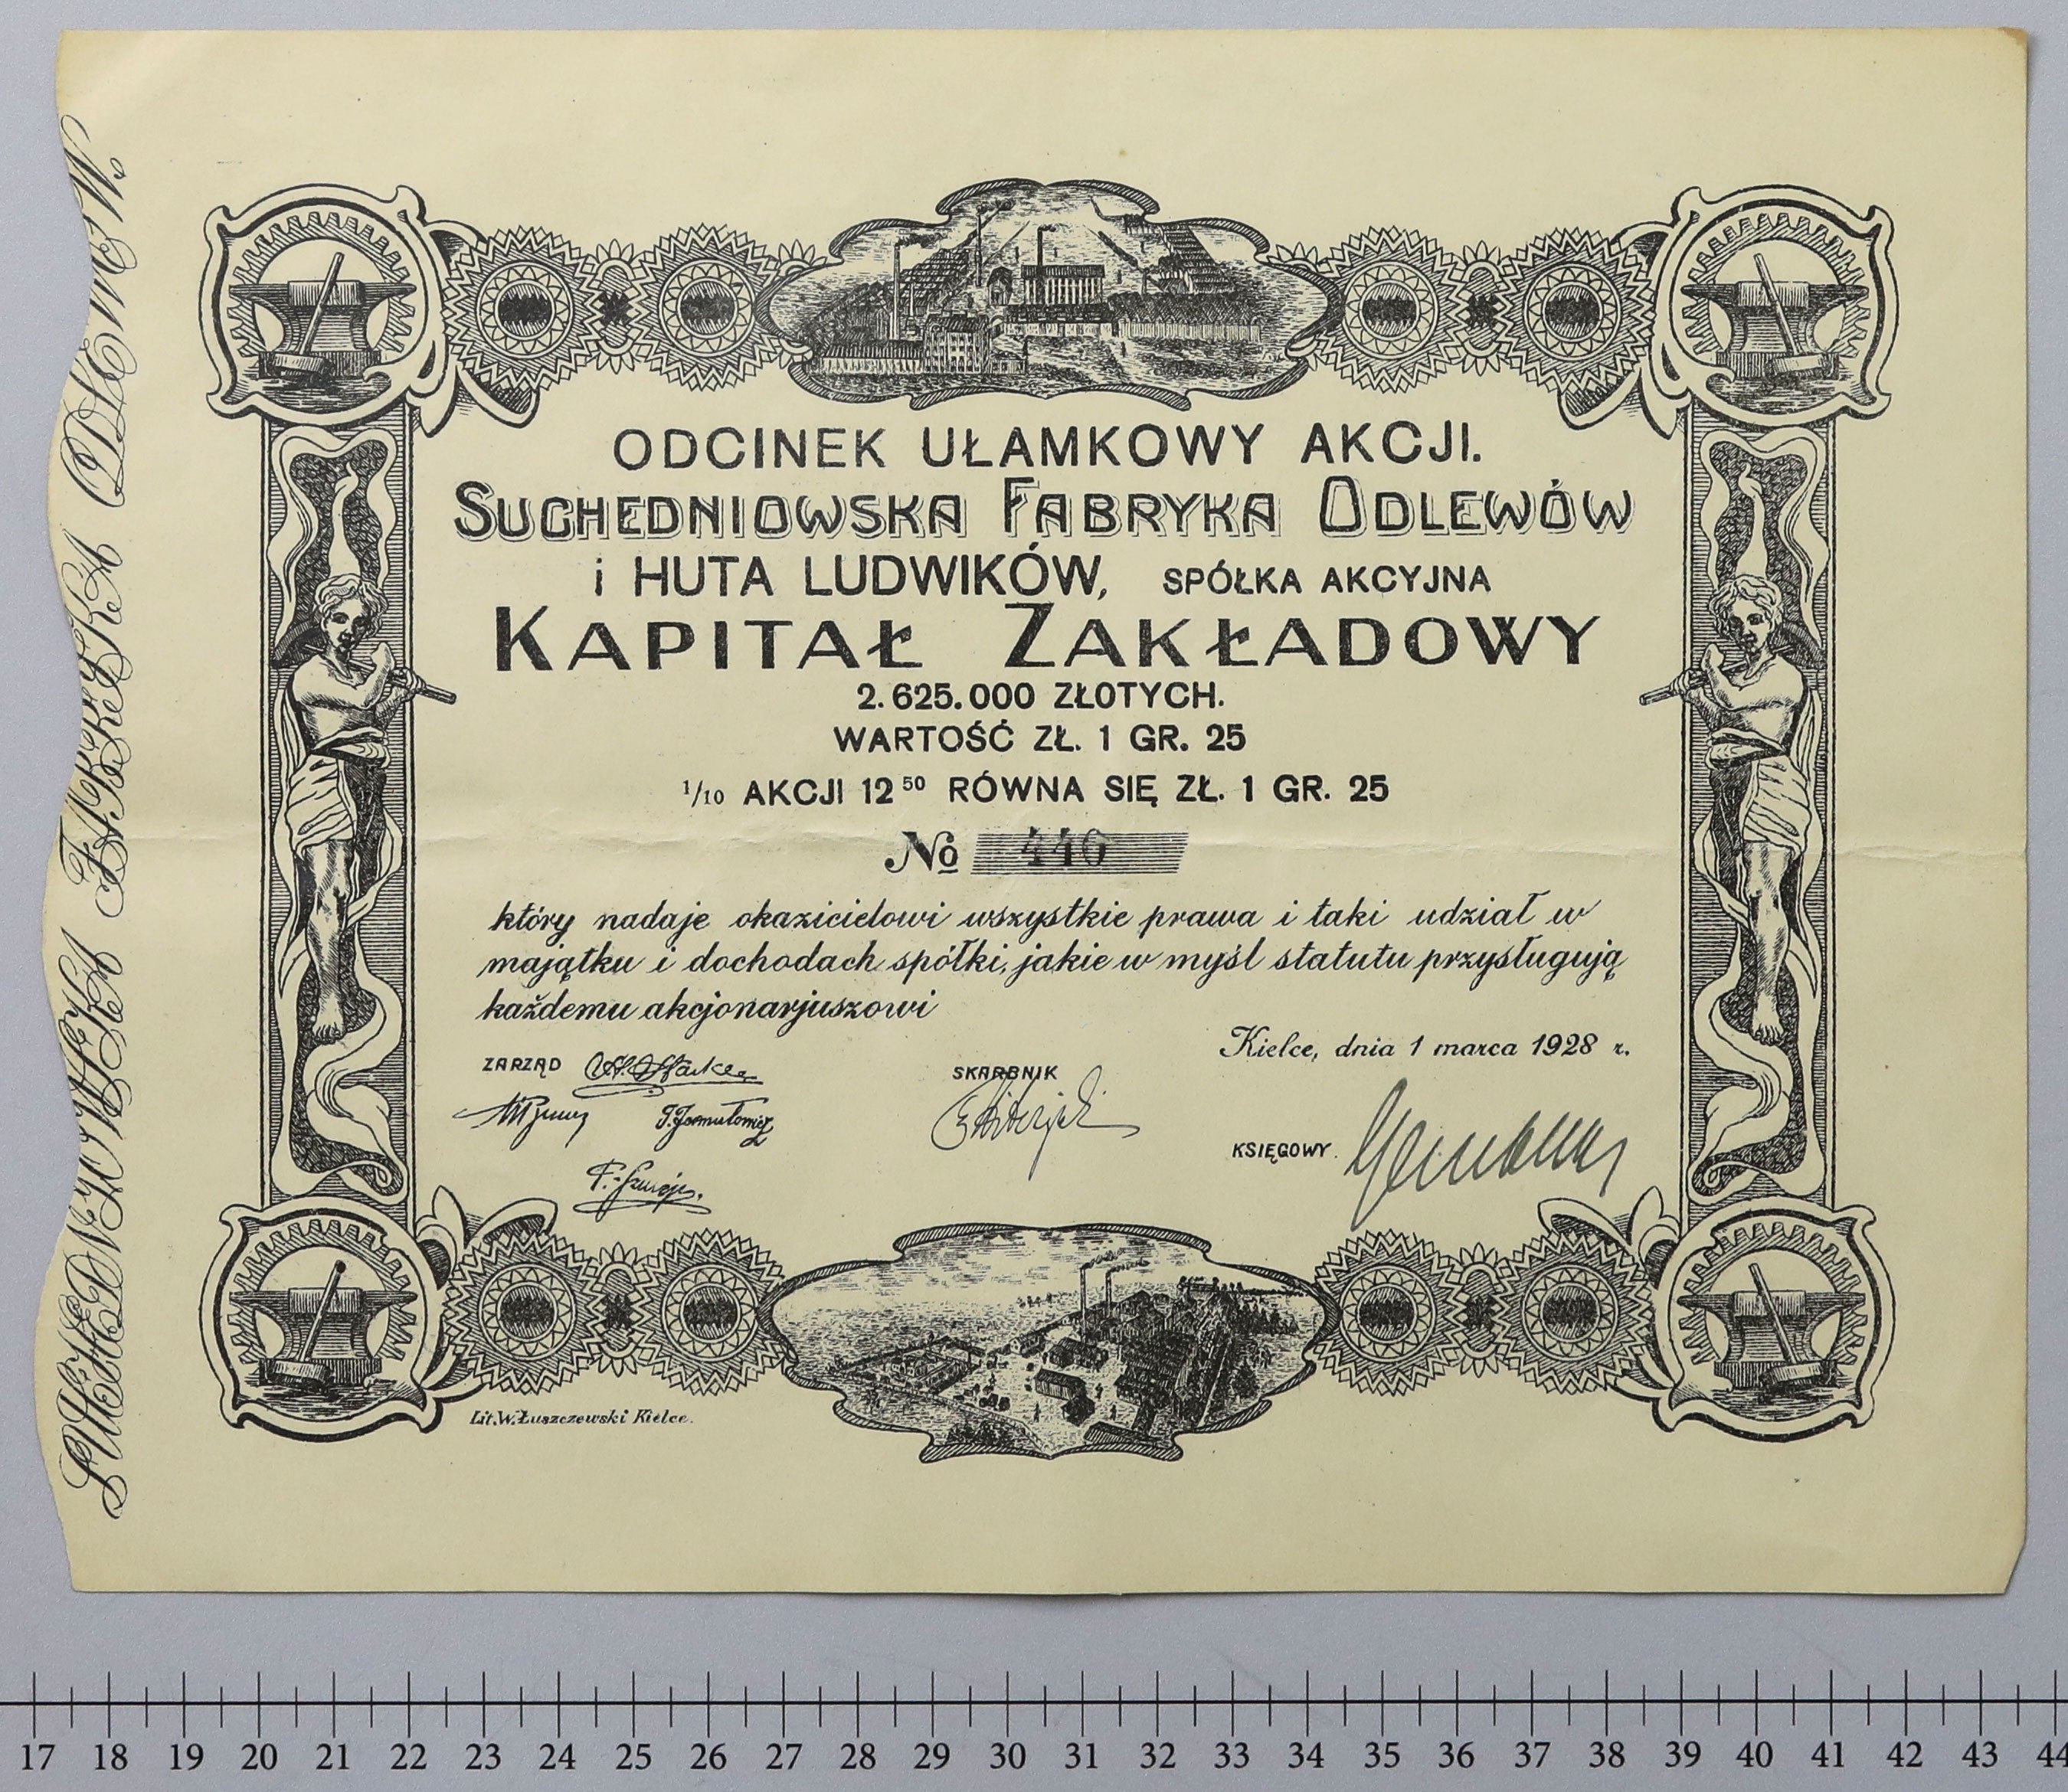 ODCINEK UŁAMKOWY AKCJI.
SUCHEDNIOWSKA FABRYKA ODLEWÓW
i HUTA LUDWIKÓW, SPÓŁKA AKCYJNA
KAPITAŁ ZAKŁADOWY
2.625.000 ZŁOTYCH.
WARTOŚĆ ZŁ. 1 GR. 25
1/10 AKCJI 12 50 RÓWNA SIĘ ZŁ. 1 GR. 25
No 440
który nadaje okazicielowi wszystkie prawa i taki udział w
majątku i dochodach spółki, jakie w myśl statutu przysługują
każdemu akcjonarjuszowi
Kielce, dnia 1 marca 1928 r.
ZARZĄD
SKARBNIK
KSIĘGOWY.
Lit. W. Łuszczewski Kielce.
SUCHEDNIOWSKA FABRYKA ODLEWÓW.
17 18 19 20 21 22 23 24 25 26 27 28 29 30 31 32 33 34 35 36 37 38 39 40 41 42 43 44